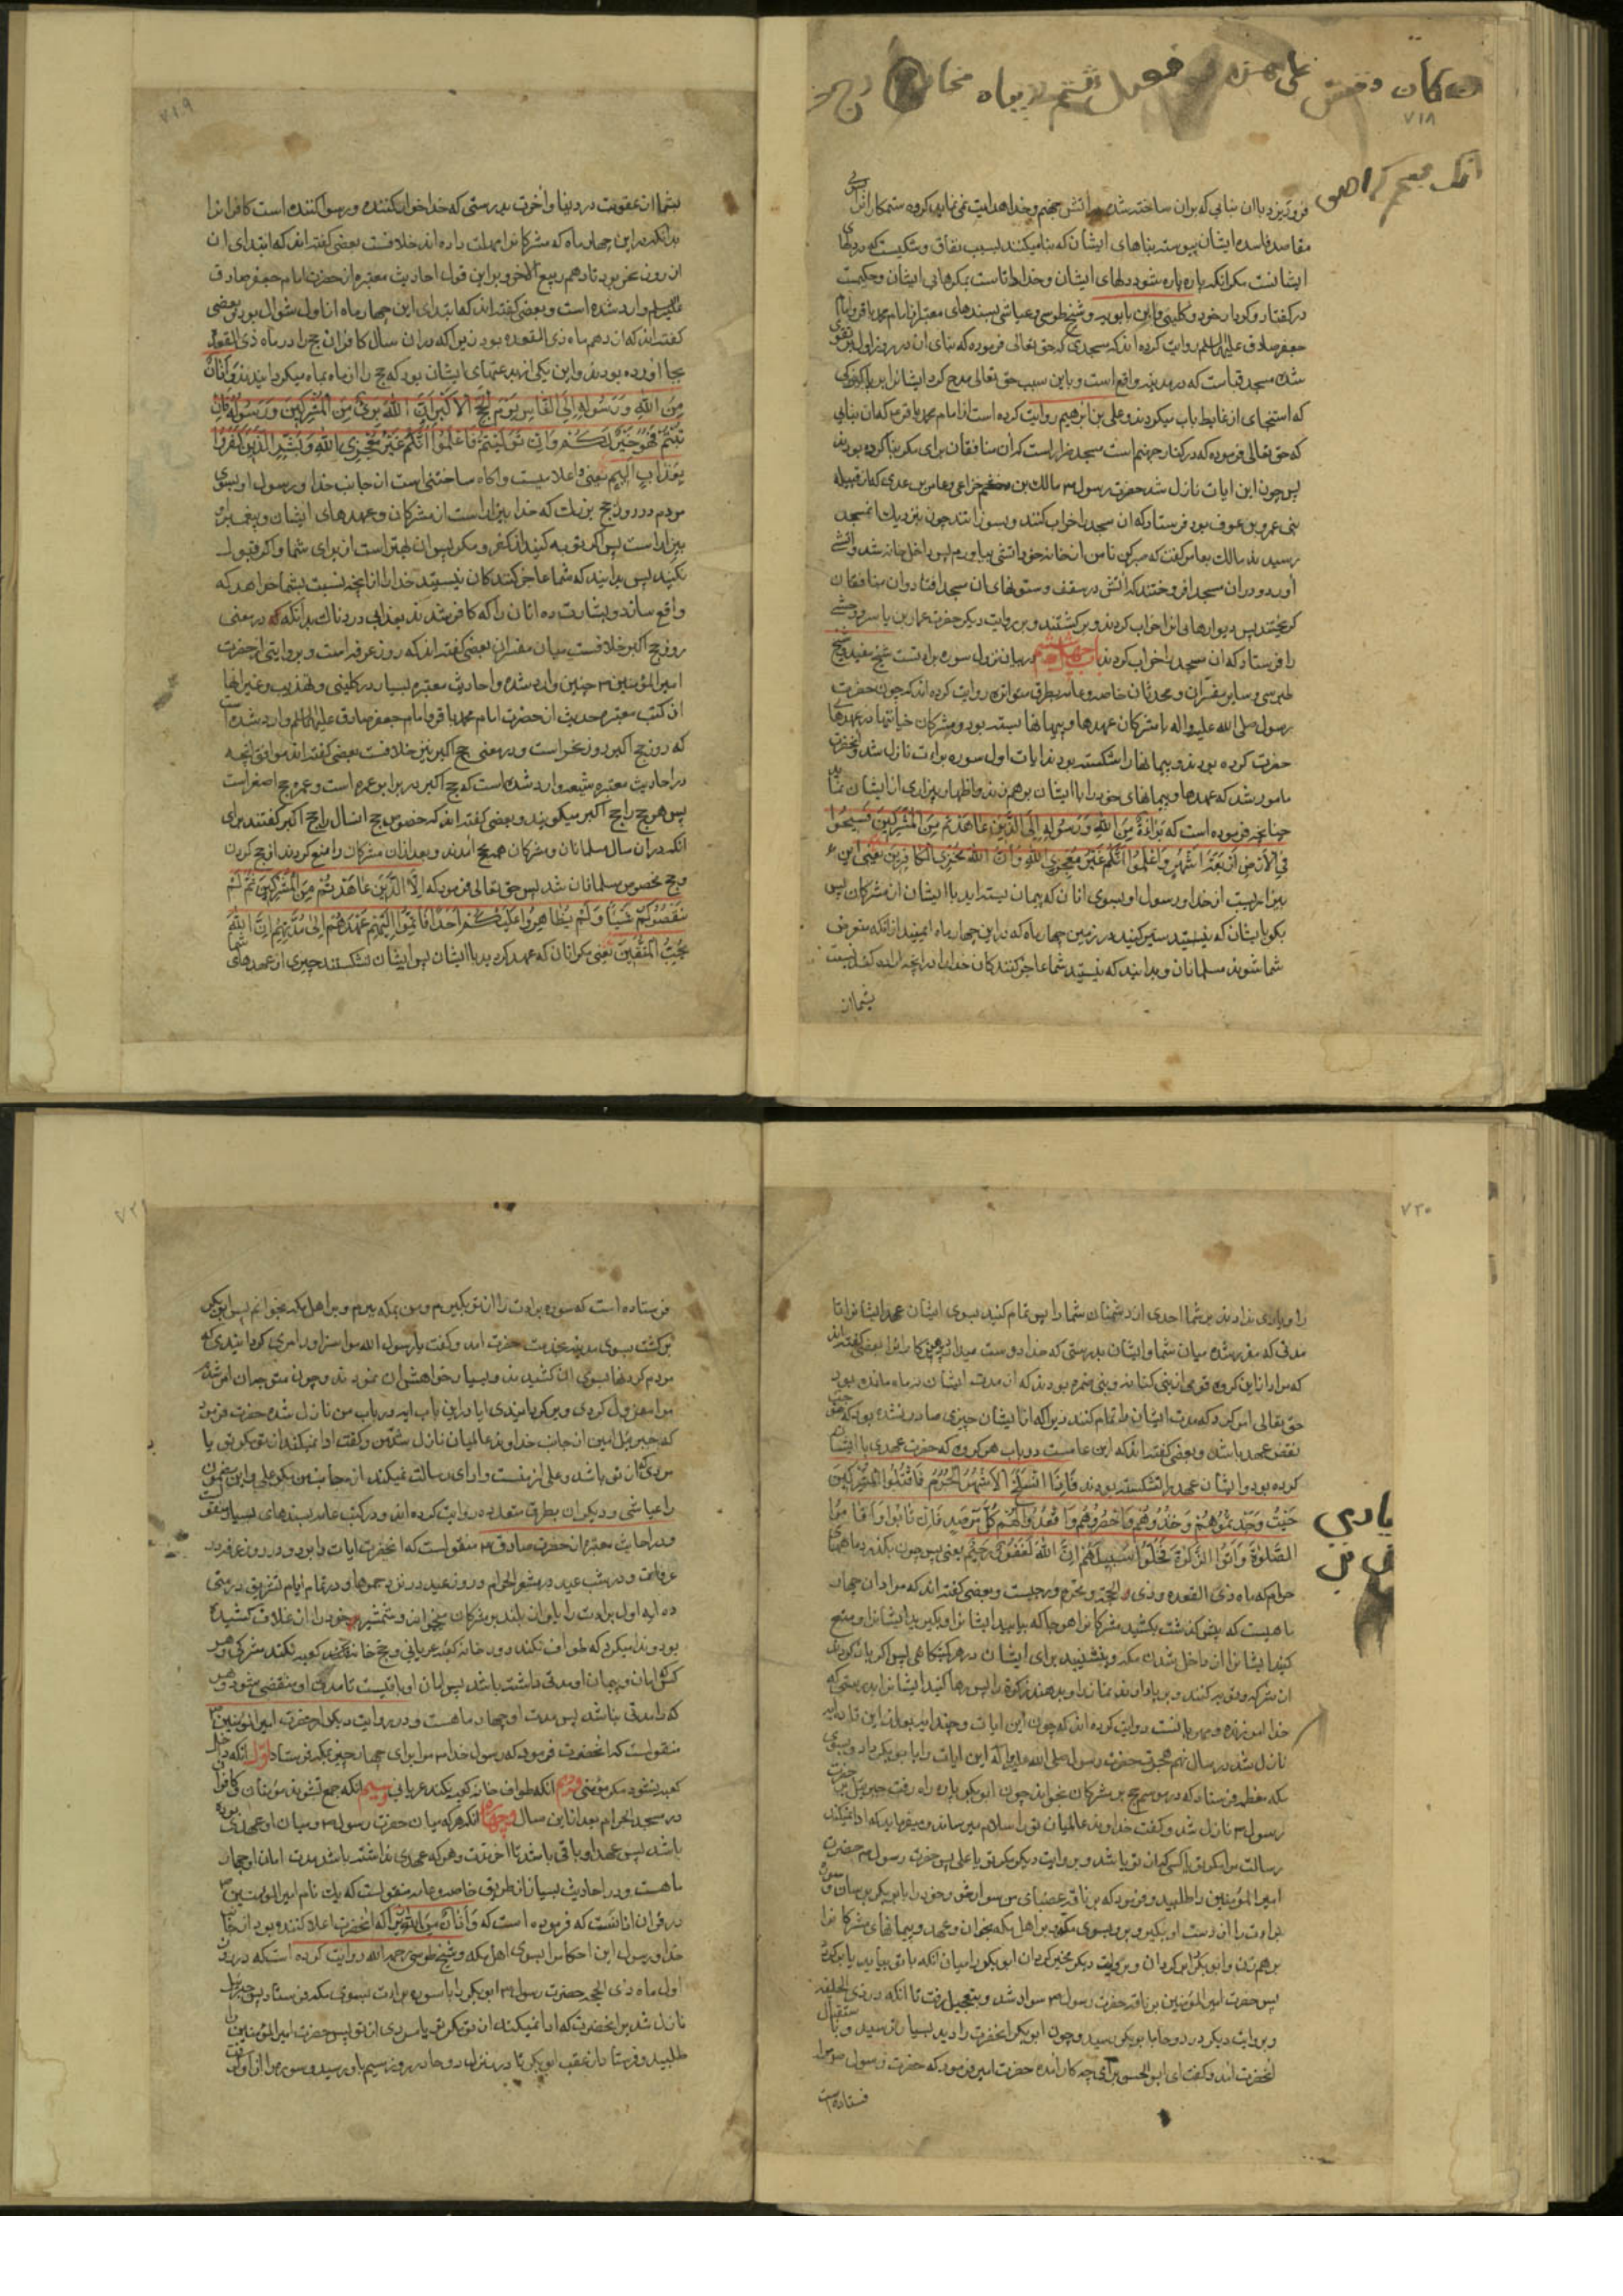 ۷۱۸
فرو ریزد با آن بنائی که بر آن ساخته شده در آتش جهنم و خدا هدایت نمی نماید گروه ستمکاران را
مقاصد فاسده ایشان پیوسته بناهای ایشان که بنا میکنند بسبب نفاق و شکیست که در دلهای
ایشانست مگر آنکه پاره پاره شود دلهای ایشان و خدا داناست بمکرهای ایشان و حکیمست
در گفتار و کردار خود و کلینی و ابن بابویه و شیخ طوسی و عیاشی بسندهای معتبر از امام محمد باقر و امام
جعفر صادق علیهما السلم روایت کرده اند که مسجدی که حق تعالی فرموده که بنای آن در روز اول بر تقوی
شده مسجد قباست که در مدینه واقع است و باین سبب حق تعالی مدح کرد ایشانرا بپاکیزگی
که استنجای از غایط باب میکردند و علی بن ابرهیم روایت کرده است از امام محمد باقر م که آن بنائی
که حق تعالی فرموده که در کنار جهنم است مسجد ضرار است که آن منافقان برای مکر بنا کرده بودند
پس چون این ایات نازل شد حضرت رسول م مالک بن خزاعی و عامر بن عدی که از قبیله
بنی عمرو بن عوف بود فرستاد که آن مسجد را خراب کنند و بسوزانند چون بنزدیک آن مسجد
رسیدند مالک بعامر گفت که صبر کن تا من از خانه خود آتشی بیاورم پس داخل خانه شد و آتشی
آورد و در آن مسجد افروختند که آتش در سقف و ستونهای آن مسجد افتاد و آن منافقان
گریختند پس دیوارهای آنرا خراب کردند و برگشتند و بروایت دیگر حضرت عمار بن یاسر و وحشی
را فرستاد که آن مسجد را خراب کردند باب چهل و ششم در بیان نزول سوره برائتست شیخ مفید و شیخ
طبرسی و سایر مفسران و محدثان خاصه و عامه بطرق متواتره روایت کرده اند که چون حضرت
رسول صلی الله علیه و اله با مشرکان عهدها و پیمانها بسته بود و مشرکان خیانتها در عهدهای
حضرت کرده بودند و پیمانها را شکسته بودند ایات اول سوره برائت نازل شد و آنحضرت
مامور شد که عهدها و پیمانهای خود را با ایشان بر هم زند و اظهار بیزاری از ایشان نماید
چنانچه فرموده است که بَرَاءَةٌ مِنَ اللهِ وَرَسُولِهِ إِلَى الَّذِينَ عَاهَدْتُمْ مِنَ الْمُشْرِكِينَ فَسِيحُوا
فِي الْأَرْضِ أَرْبَعَةَ أَشْهُرٍ وَاعْلَمُوا أَنَّكُمْ غَيْرُ مُعْجِزِي اللهِ وَأَنَّ اللهَ مُخْزِي الْكَافِرِينَ یعنی این
بیزاریست از خدا و رسول او بسوی آنان که پیمان بسته اید با ایشان از مشرکان پس
بگو بایشان که سیر کنید در زمین چهار ماه که در این چهار ماه ایمنید از آنکه متعرض
شما شوند مسلمانان و بدانید که نیستید شما عاجز کنندگان خدا را در آنچه اراده کند نسبت
بشما از
۷۱۹
بشما از عقوبت در دنیا و آخرت بدرستی که خدا خوار کننده و رسوا کننده است کافرانرا
بدانکه در این چهار ماه که مشرکانرا مهلت داده اند خلافست بعضی گفته اند که ابتدای آن
از روز نحر بود تا دهم ربیع الاخر و براین قول احادیث معتبره از حضرت امام جعفر صادق
علیه السلم وارد شده است و بعضی گفته اند که ابتدای این چهار ماه از اول شوال بود و بعضی
گفته اند که از دهم ماه ذی القعده بود زیرا که در آن سال کافران حج را در ماه ذی القعده
بجا آورده بودند و این یکی از بدعتهای ایشان بود که حج را از ماه بماه میگردانیدند وَأَذَانٌ
مِنَ اللهِ وَرَسُولِهِ إِلَى النَّاسِ يَوْمَ الْحَجِّ الْأَكْبَرِ أَنَّ اللهَ بَرِيءٌ مِنَ الْمُشْرِكِينَ وَرَسُولُهُ فَإِنْ
تُبْتُمْ فَهُوَ خَيْرٌ لَكُمْ وَإِنْ تَوَلَّيْتُمْ فَاعْلَمُوا أَنَّكُمْ غَيْرُ مُعْجِزِي اللهِ وَبَشِّرِ الَّذِينَ كَفَرُوا
بِعَذَابٍ أَلِيمٍ یعنی و اعلامیست و آگاه ساختنی است از جانب خدا و رسول او بسوی
مردم در روز حج بزرگ که خدا بیزار است از مشرکان و عهدهای ایشان و پیغمبر او
بیزار است پس اگر توبه کنید از کفر و مکر پس آن بهتر است از برای شما و اگر قبول
نکنید پس بدانید که شما عاجز کنندگان نیستید خدا را از آنچه نسبت بشما خواهد که
واقع سازد و بشارت ده آنان را که کافر شدند بعذابی دردناک بدانکه در معنی
روز حج اکبر خلافست میان مفسران بعضی گفته اند که روز عرفه است و بروایتی از حضرت
امیر المؤمنین م چنین وارد شده و احادیث معتبره بسیار در کلینی و تهذیب و غیر آنها
از کتب معتبره حدیث از حضرت امام محمد باقر و امام جعفر صادق علیهما السلم وارد شده است
که روز حج اکبر روز نحر است و در معنی حج اکبر نیز خلافست بعضی گفته اند موافق آنچه
در احادیث معتبره شیعه وارد شده است که حج اکبر در برابر عمره است و عمره حج اصغر است
پس هر حج را حج اکبر میگویند و بعضی گفته اند که خصوص حج آنسال را حج اکبر گفتند برای
آنکه در آن سال مسلمانان و مشرکان همه بحج آمدند و بعد از آن مشرکان را منع کردند از حج کردن
و حج مخصوص مسلمانان شد پس حق تعالی فرمود که إِلَّا الَّذِينَ عَاهَدْتُمْ مِنَ الْمُشْرِكِينَ ثُمَّ لَمْ
يَنْقُصُوكُمْ شَيْئًا وَلَمْ يُظَاهِرُوا عَلَيْكُمْ أَحَدًا فَأَتِمُّوا إِلَيْهِمْ عَهْدَهُمْ إِلَى مُدَّتِهِمْ إِنَّ اللهَ
يُحِبُّ الْمُتَّقِينَ یعنی مگر آنان که عهد کرده اید با ایشان پس ایشان نشکستند چیزی از عهدهای شما
۷۲۰
را و یاری ندادند بر شما احدی از دشمنان شما را پس تمام کنید بسوی ایشان عهد ایشانرا تا
مدتی که مقرر شده میان شما و ایشان بدرستی که خدا دوست میدارد پرهیزکارانرا بعضی گفته اند
که مراد از این گروه قومی از بنی کنانه و بنی ضمره بودند که از مدت ایشان نه ماه مانده بود
حق تعالی امر کرد که مدت ایشان را تمام کنند زیرا که از ایشان چیزی صادر نشده بود که موجب
نقض عهد باشد و بعضی گفته اند که این عامست در باب هر گروه که حضرت عهدی با ایشان
کرده بود و ایشان عهد را نشکسته بودند فَإِذَا انْسَلَخَ الْأَشْهُرُ الْحُرُمُ فَاقْتُلُوا الْمُشْرِكِينَ
حَيْثُ وَجَدْتُمُوهُمْ وَخُذُوهُمْ وَاحْصُرُوهُمْ وَاقْعُدُوا لَهُمْ كُلَّ مَرْصَدٍ فَإِنْ تَابُوا وَأَقَامُوا
الصَّلَوٰةَ وَآتَوُا الزَّكَوٰةَ فَخَلُّوا سَبِيلَهُمْ إِنَّ اللهَ غَفُورٌ رَحِيمٌ یعنی پس چون بگذرد ماههای
حرام که ماه ذی القعده و ذی الحجه و محرم و رجبست و بعضی گفته اند که مراد آن چهار
ماهیست که پیش گذشت بکشید مشرکانرا هر جا که بیابید ایشانرا و بگیرید ایشانرا و منع
کنید ایشانرا از داخل شدن مکه و بنشینید برای ایشان در هر کمینگاهی پس اگر باز گردند
از شرک و توبه کنند و بر پا دارند نماز را و بدهند زکوة را پس رها کنید ایشانرا بدرستی که
خدا آمرزنده و مهربانست روایت کرده اند که چون این ایات
نازل شد در سال نهم هجرت حضرت رسول صلی الله علیه و اله این ایات را بابوبکر داد و بسوی
مکه معظمه فرستاد که در موسم حج بر مشرکان بخواند چون ابوبکر پاره راه رفت جبرئیل بر حضرت
رسول م نازل شد و گفت خداوند عالمیان تو را سلام میرساند و میفرماید که ادا نمیکند
رسالت مرا مگر تو یا کسی که از تو باشد و بروایت دیگر مگر تو یا علی پس حضرت رسول م حضرت
امیر المؤمنین را طلبید و فرمود که بر ناقه عضبای من سوار شو و خود را بابوبکر برسان و سوره
برائت را از دست او بگیر و برو بسوی مکه و بر اهل مکه بخوان و عهد و پیمانهای مشرکانرا
بر هم زن و ابوبکر را برگردان و بروایت دیگر مخیر گردان ابوبکر را میان آنکه با تو بیاید یا برگردد
پس حضرت امیر المؤمنین بر ناقه حضرت رسول م سوار شد و بتعجیل رفت تا آنکه در ذی الحلیفه
و بروایت دیگر در روحا بابوبکر رسید و چون ابوبکر آنحضرت را دید بسیار ترسید و باستقبال
آنحضرت آمد و گفت ای ابو الحسن برای چه کار آمده حضرت امیر فرمود که حضرت رسول م مرا
فرستاده است
۷۲۱
فرستاده است که سوره برائت را از تو بگیرم و من بمکه ببرم و بر اهل مکه بخوانم پس ابوبکر
برگشت بسوی مدینه بخدمت حضرت آمد و گفت یا رسول الله مرا سزاوار امری گردانیدی که
مردم گردنها بسوی آن کشیدند و بسیار خواهش آن نمودند و چون متوجه آن امر شدم
مرا معزول کردی و برگردانیدی آیا در این باب آیه در باب من نازل شده حضرت فرمود
که جبرئیل امین از جانب خداوند عالمیان نازل شد بر من و گفت ادا نمیکند از تو مگر تو یا
مردی که از تو باشد و علی از منست و ادای رسالت نمیکند از جانب من مگر علی و این مضمون
را عیاشی و دیگران بطرق متعدده روایت کرده اند و در کتب عامه بسندهای بسیار منقولست
و در احادیث معتبره از حضرت صادق م منقولست که آنحضرت ایات را برد و در روز عرفه در
عرفات و در شب عید در مشعر الحرام و روز عید در نزد جمرها و در تمام ایام تشریق در منی
ده ایه اول برائت را باواز بلند بر مشرکان میخواند و شمشیر خود را از غلاف کشیده
بود و ندا میکرد که طواف نکند دور خانه کعبه عریانی و حج خانه کعبه نکند مشرکی و هر
کس امان و پیمان او مدتی داشته باشد پس امان او باقیست تا مدت او منقضی شود و هر
که را مدتی نباشد پس مدت او چهار ماهست و در روایت دیگر از حضرت امیر المؤمنین م
منقولست که آنحضرت فرمود که رسول خدا م مرا برای چهار چیز بمکه فرستاد اول آنکه داخل
کعبه نشود مگر مؤمنی دوم آنکه طواف خانه کعبه نکند عریانی سیم آنکه جمع نشوند مؤمنان و کافران
در مسجد الحرام بعد از این سال چهارم آنکه هر که میان حضرت رسول م و میان او عهدی بوده
باشد پس عهد او باقی باشد تا آخر مدت و هر که عهدی نداشته باشد مدت امان او چهار
ماهست و در احادیث بسیار از طریق خاصه و عامه منقولست که یک نام امیر المؤمنین م
در قرآن اذانست که فرموده است که وَأَذَانٌ مِنَ اللهِ زیرا که آنحضرت اعلام کننده بود از جانب
خدا و رسول این احکام را بسوی اهل مکه و شیخ طوسی رحمه الله روایت کرده است که در روز
اول ماه ذی الحجه حضرت رسول م ابوبکر را با سوره برائت بسوی مکه فرستاد پس جبرئیل
نازل شد بر آنحضرت که ادا نمیکند از تو مگر تو یا مردی از تو پس حضرت امیر المؤمنین را
طلبید و فرستاد از عقب ابوبکر تا در منزل روحا در روز سیم باو رسید و سوره را از او گرفت